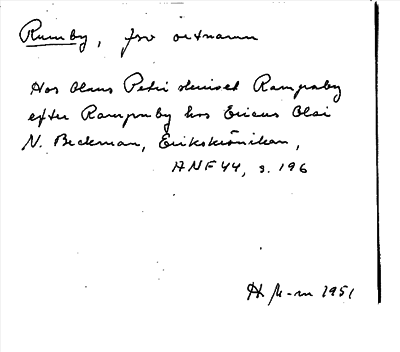 Rumby, fsv ortnamn
Hos Olaus Petri skrivet Rampnaby
efter Rampnby hos Ericus Olai
N. Beckman, Erikskrönikan,
ANF 44, s. 196
H 1951